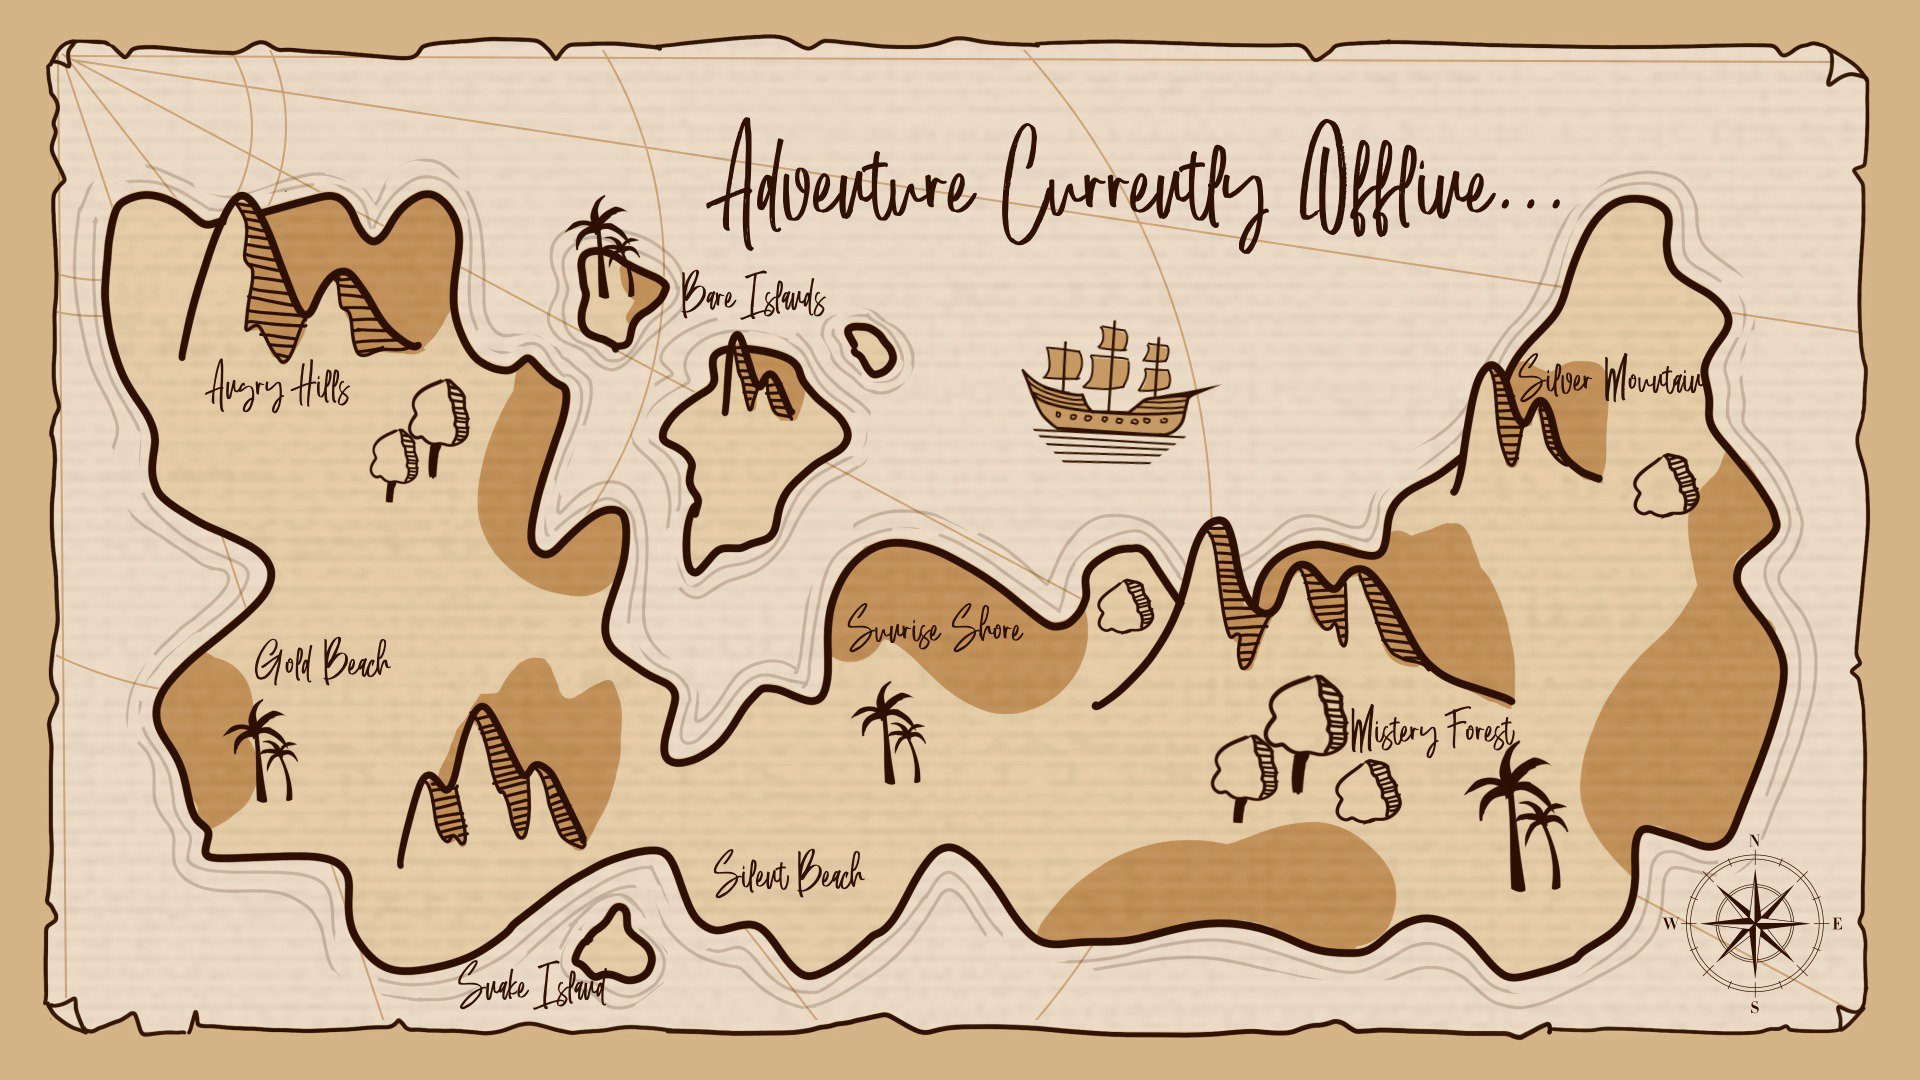 Adventure Currently Offline...
Bare Islands
Angry Hills
Silver Mountain
Sunrise Shore
Gold Beach
Mistery Forest
Silent Beach
Snake Island
N
W E
S